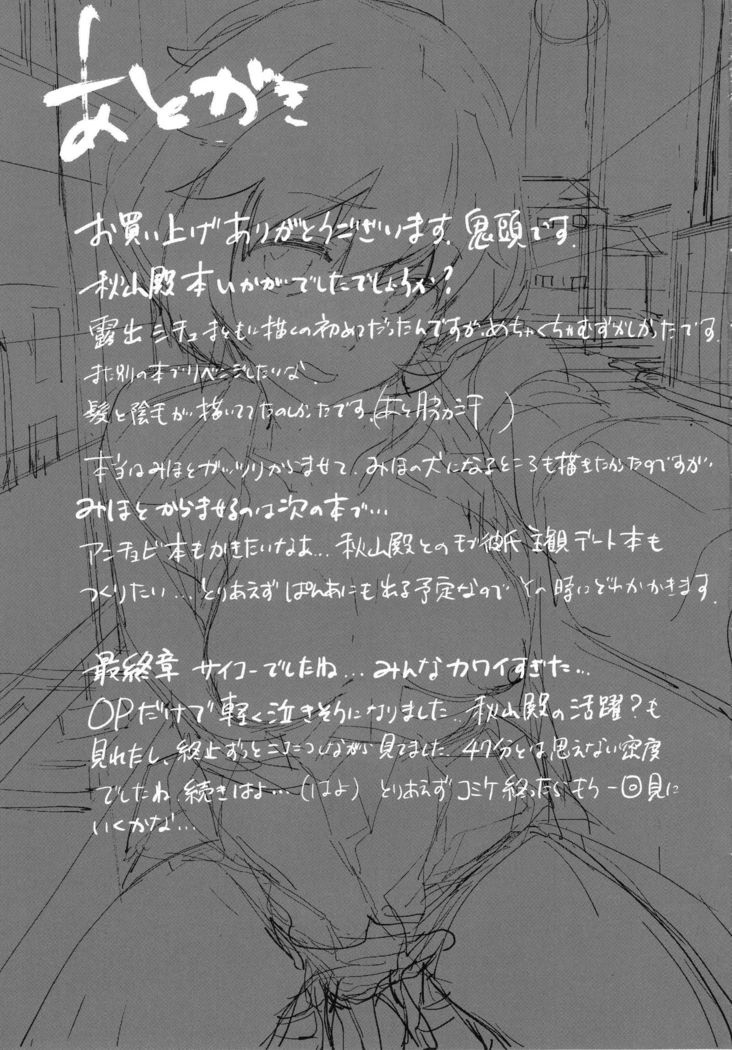 あとがき
お買い上げありがとうございます。鬼頭です。
秋山殿本いかがでしたでしょうか?
露出シチュまともに描くの初めてだったんですが、めちゃくちゃむずかしかったです。
また別の本でリベンジしたいな。
髪と陰毛が描いててたのしかたです。(あと脇汗)
本当はみほとガッツリからませて、みほの犬になるところも描きたかったのですが、
みほとからませるのは次の本で…
アンチョビ本もかきたいなあ…秋山殿とのモブ彼氏主観デート本も
つくりたい…とりあえずぱんあにも出る予定なのでその時にどれかかきます。
最終章 サイコーでしたね…みんなカワイすぎた…
OPだけで軽く泣きそうになりました。秋山殿の活躍?も
見れたし、終止ずっとニコニコしながら見てました。47分とは思えない密度
でしたね。続きはよ…(はよ) とりあえずコミケ終ったらもう一回見に
いくかな…